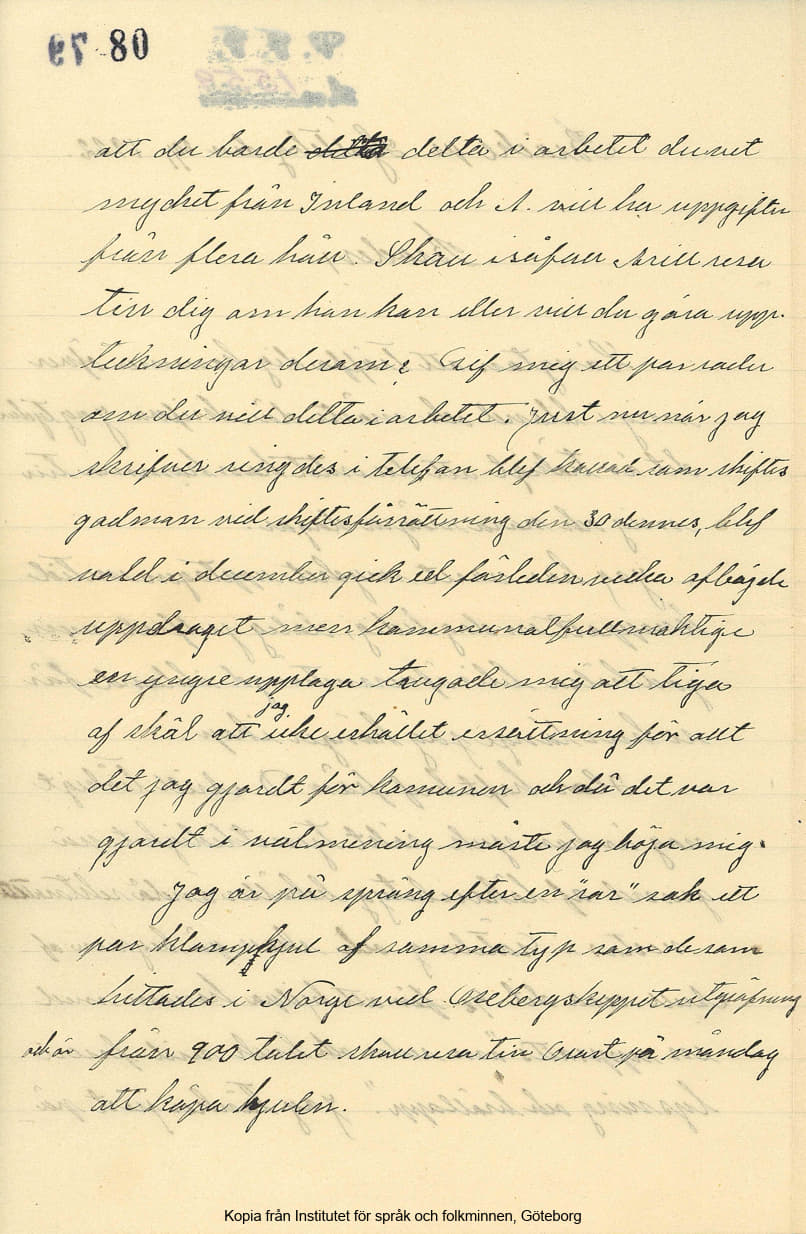 80
att du borde delta i arbetet du vet
mycket från Inland och A. vill ha uppgifter
från flera håll. Skall i såfall Arill resa
till dig om han kan eller vill du göra upp-
teckningar derom? Gif mig ett par rader
om du vill delta i arbetet. Just nu när jag
skrifver ringdes i telefon blef kallad som skiftes
godman vid skiftesförrättning den 30 dennes, blef
vald i december gick ed förleden vecka afböjde
uppdraget men kommunalfullmäktige
en yngre upplaga trugade mig att tiga
af skäl att jag icke erhållet ersättning för allt
det jag gjordt för komunen och då det var
gjordt i välmening måste jag böja mig.
Jag är på språng efter en "rar" sak ett
par klampkjul af samma typ som de som
hittades i Norge vid Osebergskeppet utgräfning
och är från 900 talet skall resa till Orust på måndag
att köpa hjulen.
Kopia från Institutet för språk och folkminnen, Göteborg